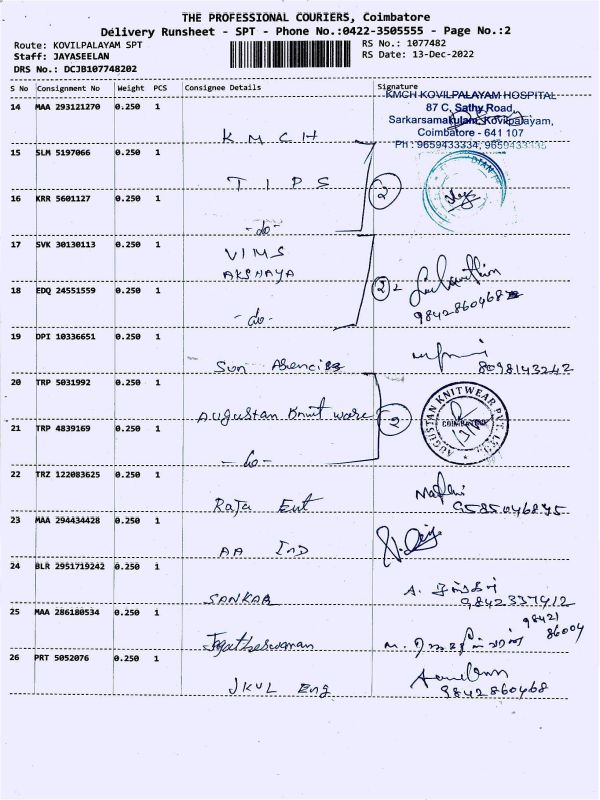 THE PROFESSIONAL COURIERS, Coimbatore
Delivery Runsheet - SPT - Phone No.:0422-3505555 - Page No.:2
Route: KOVILPALAYAM SPT
Staff: JAYASEELAN
DRS No.: DCJB107748202
RS No.: 1077482
RS Date: 13-Dec-2022
S No Consignment No Weight PCS Consignee Details Signature
KMCH KOVILPALAYAM HOSPITAL
87 C, Sathy Road,
Sarkarsamakulam, Kovilpalayam,
Coimbatore - 641 107
Ph : 9659433334, 9659433435
14 MAA 293121270 0.250 1
K M C H
15 SLM 5197066 0.250 1
T I P S
2
16 KRR 5601127 0.250 1
- do -
17 SVK 30130113 0.250 1
VIMS
AKSHAYA
18 EDQ 24551559 0.250 1
- do -
2
9842860468
19 DPI 10336651 0.250 1
Sun Agencies
8098143242
20 TRP 5031992 0.250 1
Augustan Knit ware
2
AUGUSTAN KNITWEAR PVT. LTD.
COIMBATORE
21 TRP 4839169 0.250 1
- do -
22 TRZ 122083625 0.250 1
Raja Ent
9585046875
23 MAA 294434428 0.250 1
AA IND
24 BLR 2951719242 0.250 1
SANKAR
9842337912
25 MAA 286180534 0.250 1
Jagatheswaran
98421
86004
26 PRT 5052076 0.250 1
JKUL Eng
9842860468